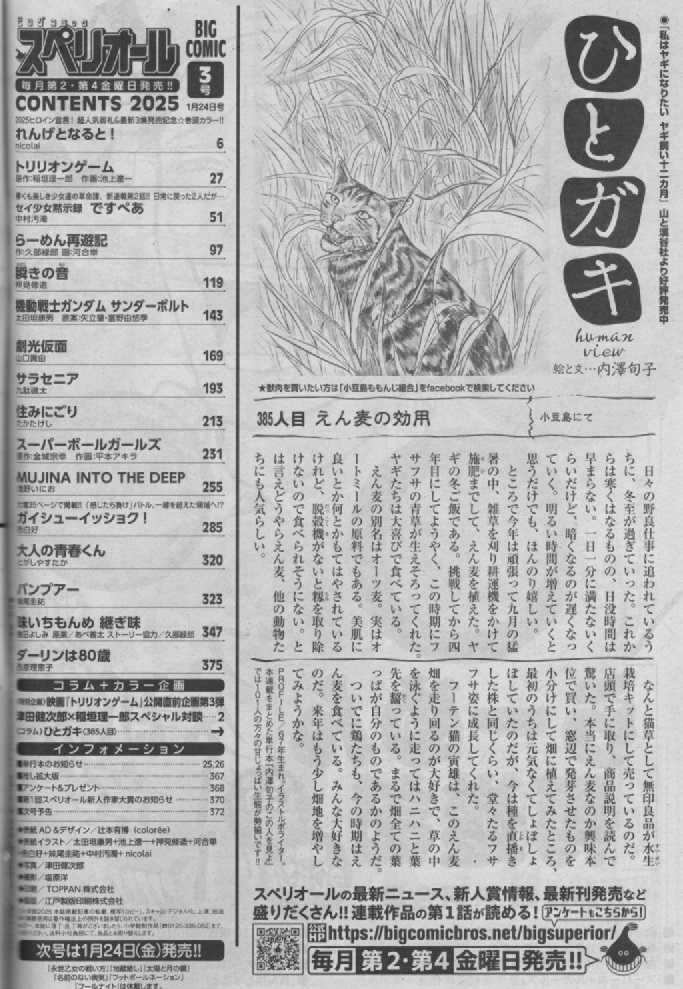 ビッグコミック
スペリオール
BIG
COMIC
3
号
毎月第2・第4金曜日発売!!
CONTENTS 2025
1月24日号
2025ヒロイン宣言!超人気御礼&最新3集発売記念☆巻頭カラー!!
れんげとなると!
nicolai
6
トリリオンゲーム
原作/稲垣理一郎 作画/池上遼一
27
新連載第2話!!日常に戻った2人だが…
セイ少女黙示録 ですぺあ
中村汚濁
51
らーめん再遊記
作/久部緑郎 画/河合単
97
瞬きの音
押見修造
119
機動戦士ガンダム サンダーボルト
太田垣康男 原案/矢立肇・富野由悠季
143
劇光仮面
山口貴由
169
サラセニア
九駄礁太
193
住みにごり
たかたけし
213
スーパーボールガールズ
原作/金城宗幸 作画/平本アキラ
231
MUJINA INTO THE DEEP
浅野いにお
255
「感じたら負け」バトル、一線を超えた領域へ!?
ガイシューイッショク!
色白好
285
大人の青春くん
とがしやすたか
320
バンプアー
妹尾圭祐
323
味いちもんめ 継ぎ味
倉田よしみ 原案/あべ善太 ストーリー協力/久部緑郎
347
ダーリンは80歳
西原理恵子
375
コラム+カラー企画
[特別企画]映画「トリリオンゲーム」公開直前企画第3弾
津田健次郎×稲垣理一郎スペシャル対談…2
[コラム]ひとガキ(385人目)
インフォメーション
■単行本のお知らせ 25,26
■推し拡大版 367
■アンケート&プレゼント 368
■第1回スペリオール新人作家大賞のお知らせ 370
■次号予告 372
●表紙AD&デザイン/辻本有博(colorée)
●表紙イラスト/太田垣康男+池上遼一+押見修造+河合単
+色白好+妹尾圭祐+中村汚濁+nicolai
●写真/津田健次郎
●撮影/塩原洋
●印刷/TOPPAN株式会社
●製版/江戸製版印刷株式会社
次号は1月24日(金)発売!!
「永世乙女の戦い方」「地蔵嬉し」「太陽と月の鋼」
「名前のない病気」「フットボールネーション」
「フールナイト」は休載します。
●『私はヤギになりたい ヤギ飼い十二カ月』山と溪谷社より好評発売中
ひとガキ
human
view
絵と文…内澤旬子
★獣肉を買いたい方は「小豆島ももんじ組合」をfacebookで検索してください
385人目 えん麦の効用
小豆島にて
日々の野良仕事に追われているう
ちに、冬至が過ぎていった。これか
らは寒くはなるものの、日没時間は
早まらない。一日一分に満たないく
らいだけど、暗くなるのが遅くなっ
ていく。明るい時間が増えていくと
思うだけでも、ほんのり嬉しい。
ところで今年は頑張って九月の猛
暑の中、雑草を刈り耕運機をかけて
施肥までして、えん麦を植えた。ヤ
ギの冬ご飯である。挑戦してから四
年目にしてようやく、この時期にフ
サフサの青草が生えそろってくれた。
ヤギたちは大喜びで食べている。
えん麦の別名はオーツ麦。実はオ
ートミールの原料でもある。美肌に
良いとか何とかもてはやされている
けれど、脱穀機がないと籾を取り除
けないので食べられそうにない。と
は言えどうやらえん麦、他の動物た
ちにも人気らしい。
なんと猫草として無印良品が水生
栽培キットにして売っているのだ。
店頭で手に取り、商品説明を読んで
驚いた。本当にえん麦なのか興味本
位で買い、窓辺で発芽させたものを
小分けにして畑に植えてみたところ、
最初のうちは元気なくてしょぼしょ
ぼしていたのだが、今は種を直播き
した株と同じくらい、堂々たるフサ
フサ姿に成長してくれた。
フーテン猫の寅雄は、このえん麦
畑を走り回るのが大好きで、草の中
を泳ぐように走ってはハニハニと葉
先を齧っている。まるで畑全ての葉
っぱが自分のものであるかのようだ。
ついでに鶏たちも、今の時期はえ
ん麦を食べている。みんな大好きな
のだ。来年はもう少し畑地を増やし
てみようかな。
PROFILE/67年生まれ。イラストルポライター。
本連載をまとめた単行本「内澤旬子のこの人を見よ」
では101人の方々の甘じょっぱい生態が勢揃いです!!
スペリオールの最新ニュース、新人賞情報、最新刊発売など
盛りだくさん!!連載作品の第1話が読める!アンケートもこちらから!
https://bigcomicbros.net/bigsuperior/
毎月 第2・第4 金曜日発売!!